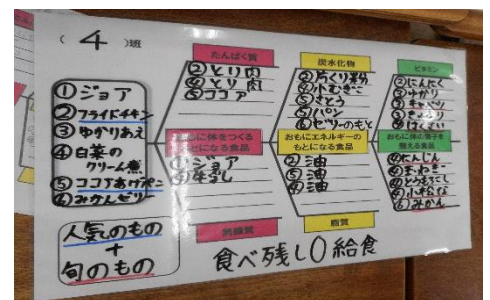 （ 4 ）班
①ジョア
②フライドチキン
③ゆかりあえ
④白菜の
クリーム煮
⑤ココアあげパン
⑥みかんゼリー
人気のもの
+
旬のもの
たんぱく質
②とり肉
④とり肉
⑤ココア
おもに体をつくる
もとになる食品
①ジョア
無機質
炭水化物
②片くり粉
④小むぎこ
⑤さとう
⑤パン
⑥ゼリーのもと
おもにエネルギーの
もとになる食品
②油
④油
⑤油
脂質
ビタミン
②にんにく
③ゆかり
③キャベツ
③きゅうり
④はくさい
おもに体の調子を
整える食品
④にんじん
④玉ねぎ
④小松な
⑥みかん
食べ残し0給食